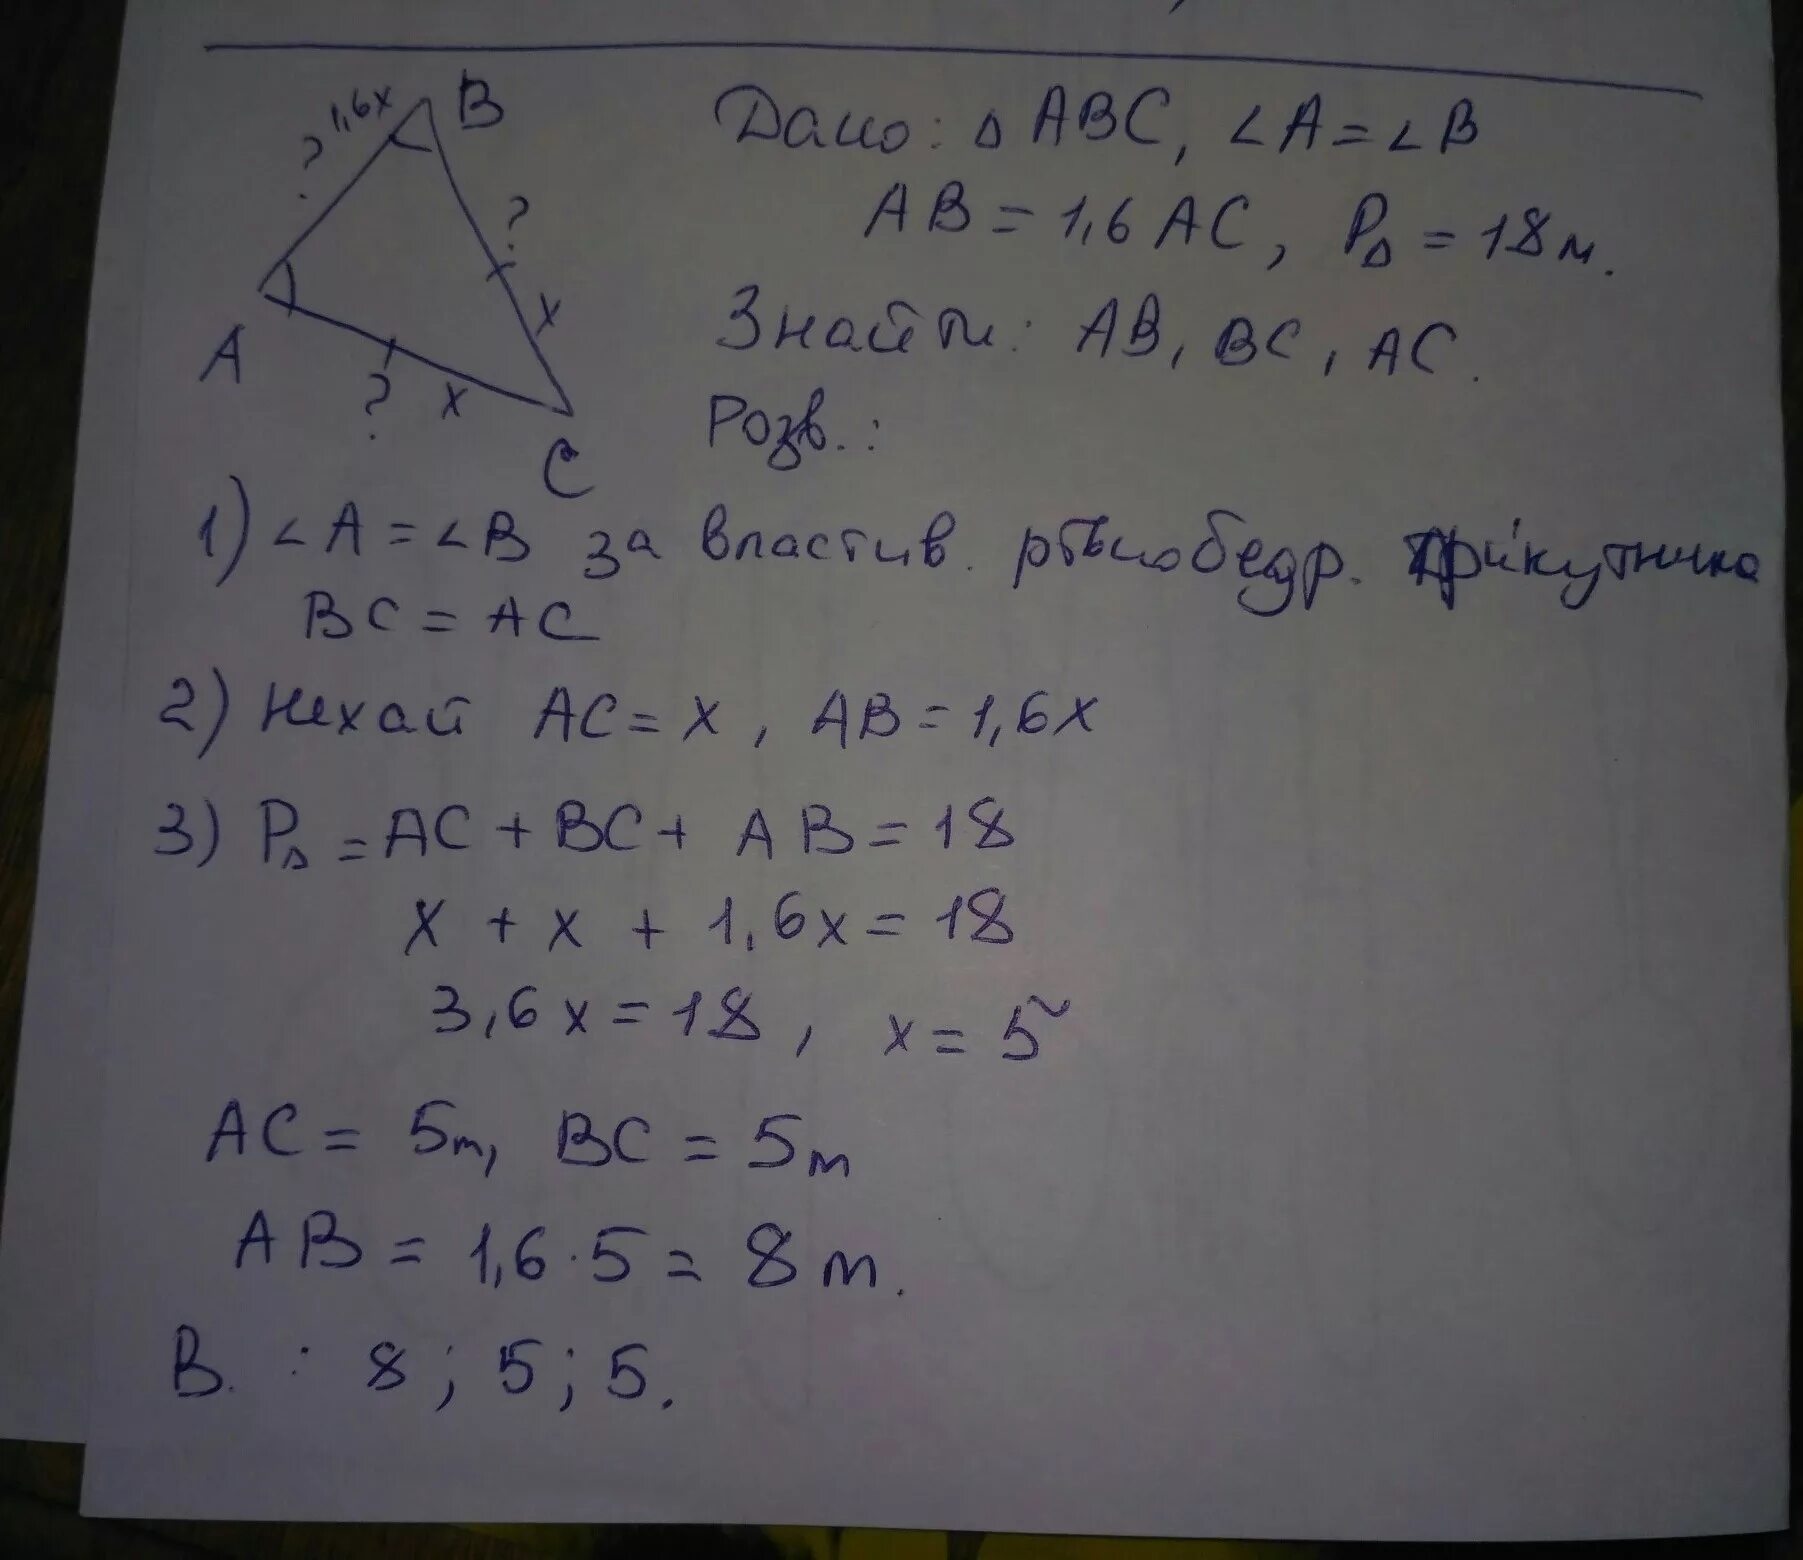 1,6x B
?
?
x
A
? x
C
Дано: △ ABC, ∠A = ∠B
AB = 1,6 AC, P△ = 18 м.
Знайти: AB, BC, AC.
Розв.:
1) ∠A = ∠B за властив. рівнобедр. трикутника
BC = AC
2) Нехай AC = x, AB = 1,6x
3) P△ = AC + BC + AB = 18
x + x + 1,6x = 18
3,6x = 18, x = 5
AC = 5m, BC = 5m
AB = 1,6 · 5 = 8m.
В. : 8; 5; 5.